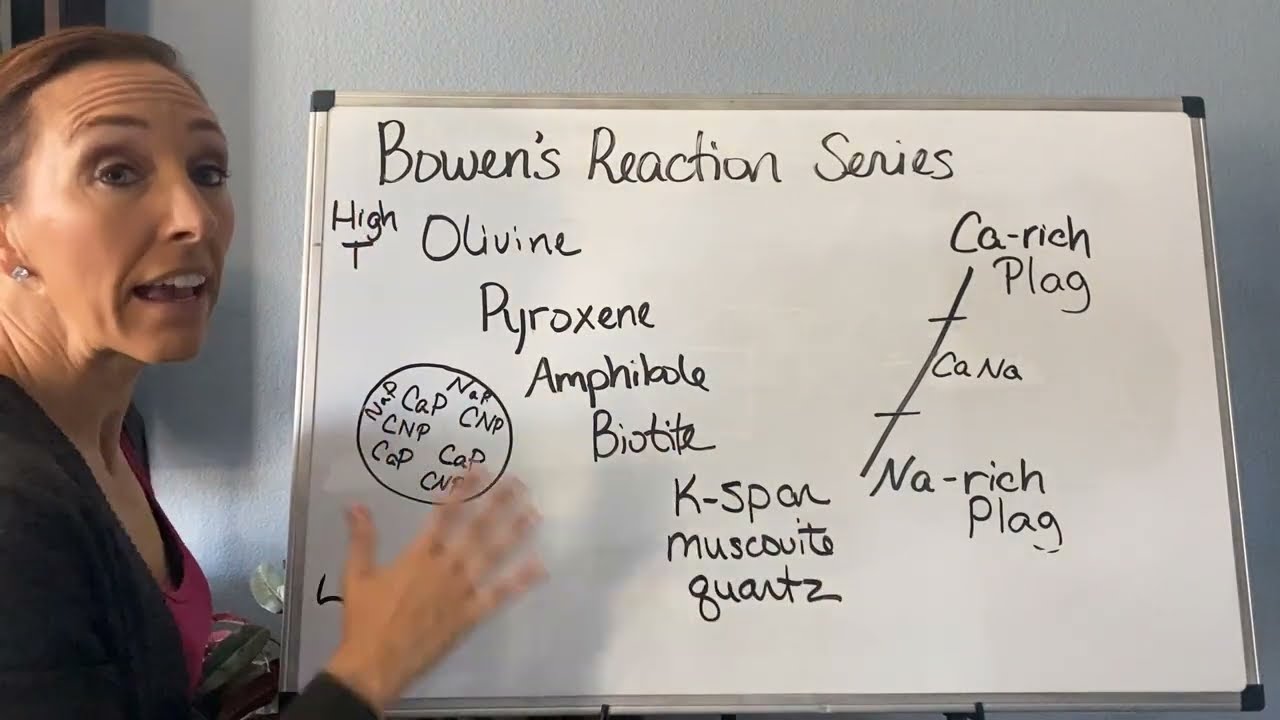 Bowen's Reaction Series
High
T
Olivine
Pyroxene
Amphibole
Biotite
K-spar
muscovite
quartz
Ca-rich
Plag
CaNa
Na-rich
Plag
NaP CaP NaP
CNP CNP
CaP CaP
CNP
L